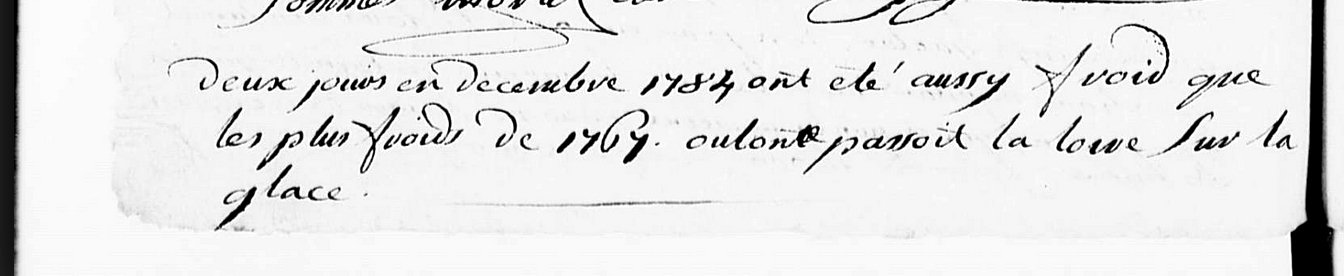 deux jours en decembre 1784 ont été aussy froid que
les plus froids de 1767. ou lont passoit la loire sur la
glace.